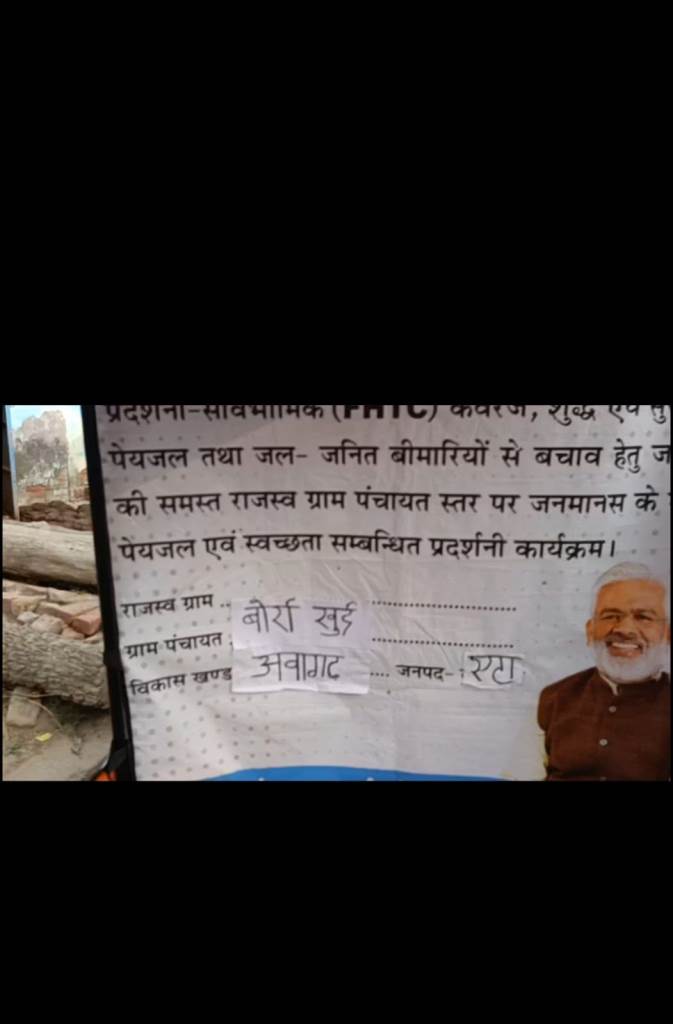 प्रदर्शनी-सार्वभौमिक (FHTC) कवरेज, शुद्ध एवं
पेयजल तथा जल- जनित बीमारियों से बचाव हेतु
की समस्त राजस्व ग्राम पंचायत स्तर पर जनमानस के
पेयजल एवं स्वच्छता सम्बन्धित प्रदर्शनी कार्यक्रम।
राजस्व ग्राम .. बोर्रा खुर्द ....................
ग्राम पंचायत :
विकास खण्ड अवागढ .... जनपद- : एटा